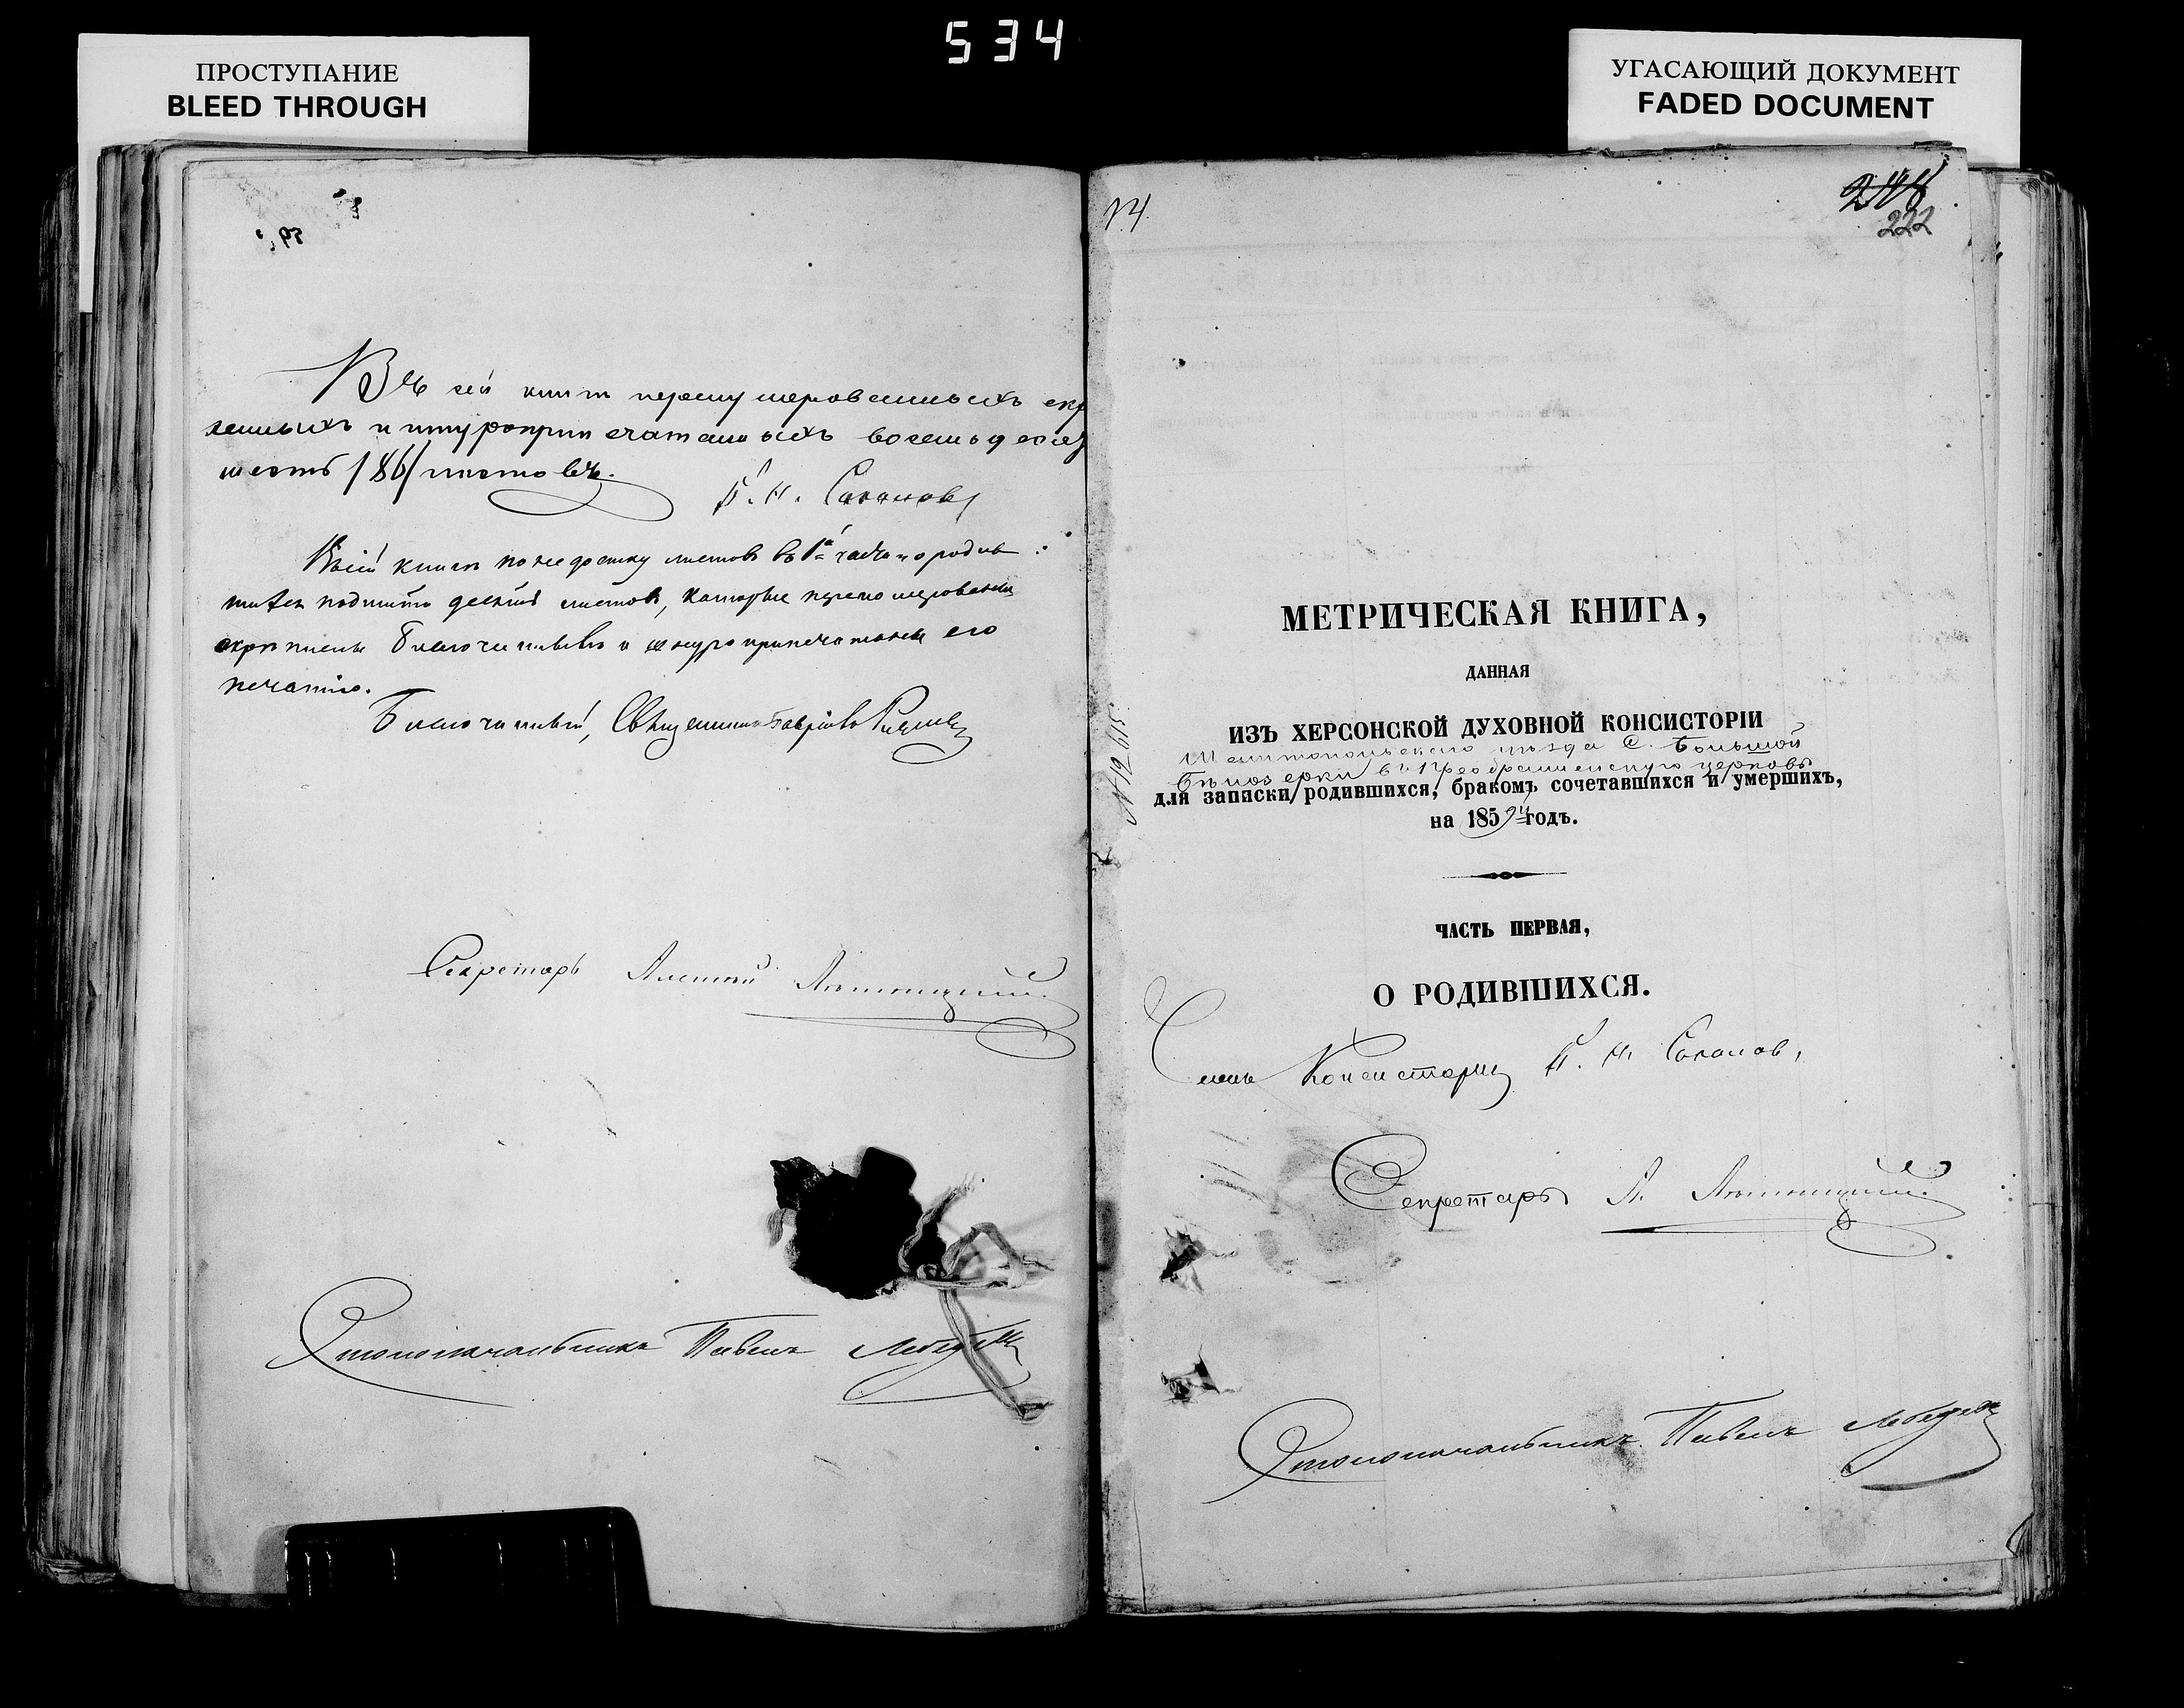 534
ПРОСТУПАНИЕ
BLEED THROUGH
УГАСАЮЩИЙ ДОКУМЕНТ
FADED DOCUMENT
Въ сей книгѣ перенумерованныхъ скр
ленныхъ и шнуроприпечатанныхъ восемьдеся
шесть /86/ листовъ.
Въ сей книгѣ по недостку листовъ въ 1й части о родив
шихся подшито десять листовъ, которые перенумерованы
скрѣплены Благочиннымъ и шнуроприпечатаны его
печатію.
Благочинный, Священникъ Гавріилъ
Секретарь
Столоначальникъ Павелъ Лебедевъ
244
222
МЕТРИЧЕСКАЯ КНИГА,
ДАННАЯ
ИЗЪ ХЕРСОНСКОЙ ДУХОВНОЙ КОНСИСТОРІИ
Мелитопольскаго уѣзда С. Большой
Бѣлозерки въ Преображенскую церковь
для записки родившихся, бракомъ сочетавшихся и умершихъ,
на 185 годъ.
ЧАСТЬ ПЕРВАЯ,
О РОДИВШИХСЯ.
Членъ Консисторіи
Секретарь А.
Столоначальникъ Павелъ Лебедевъ